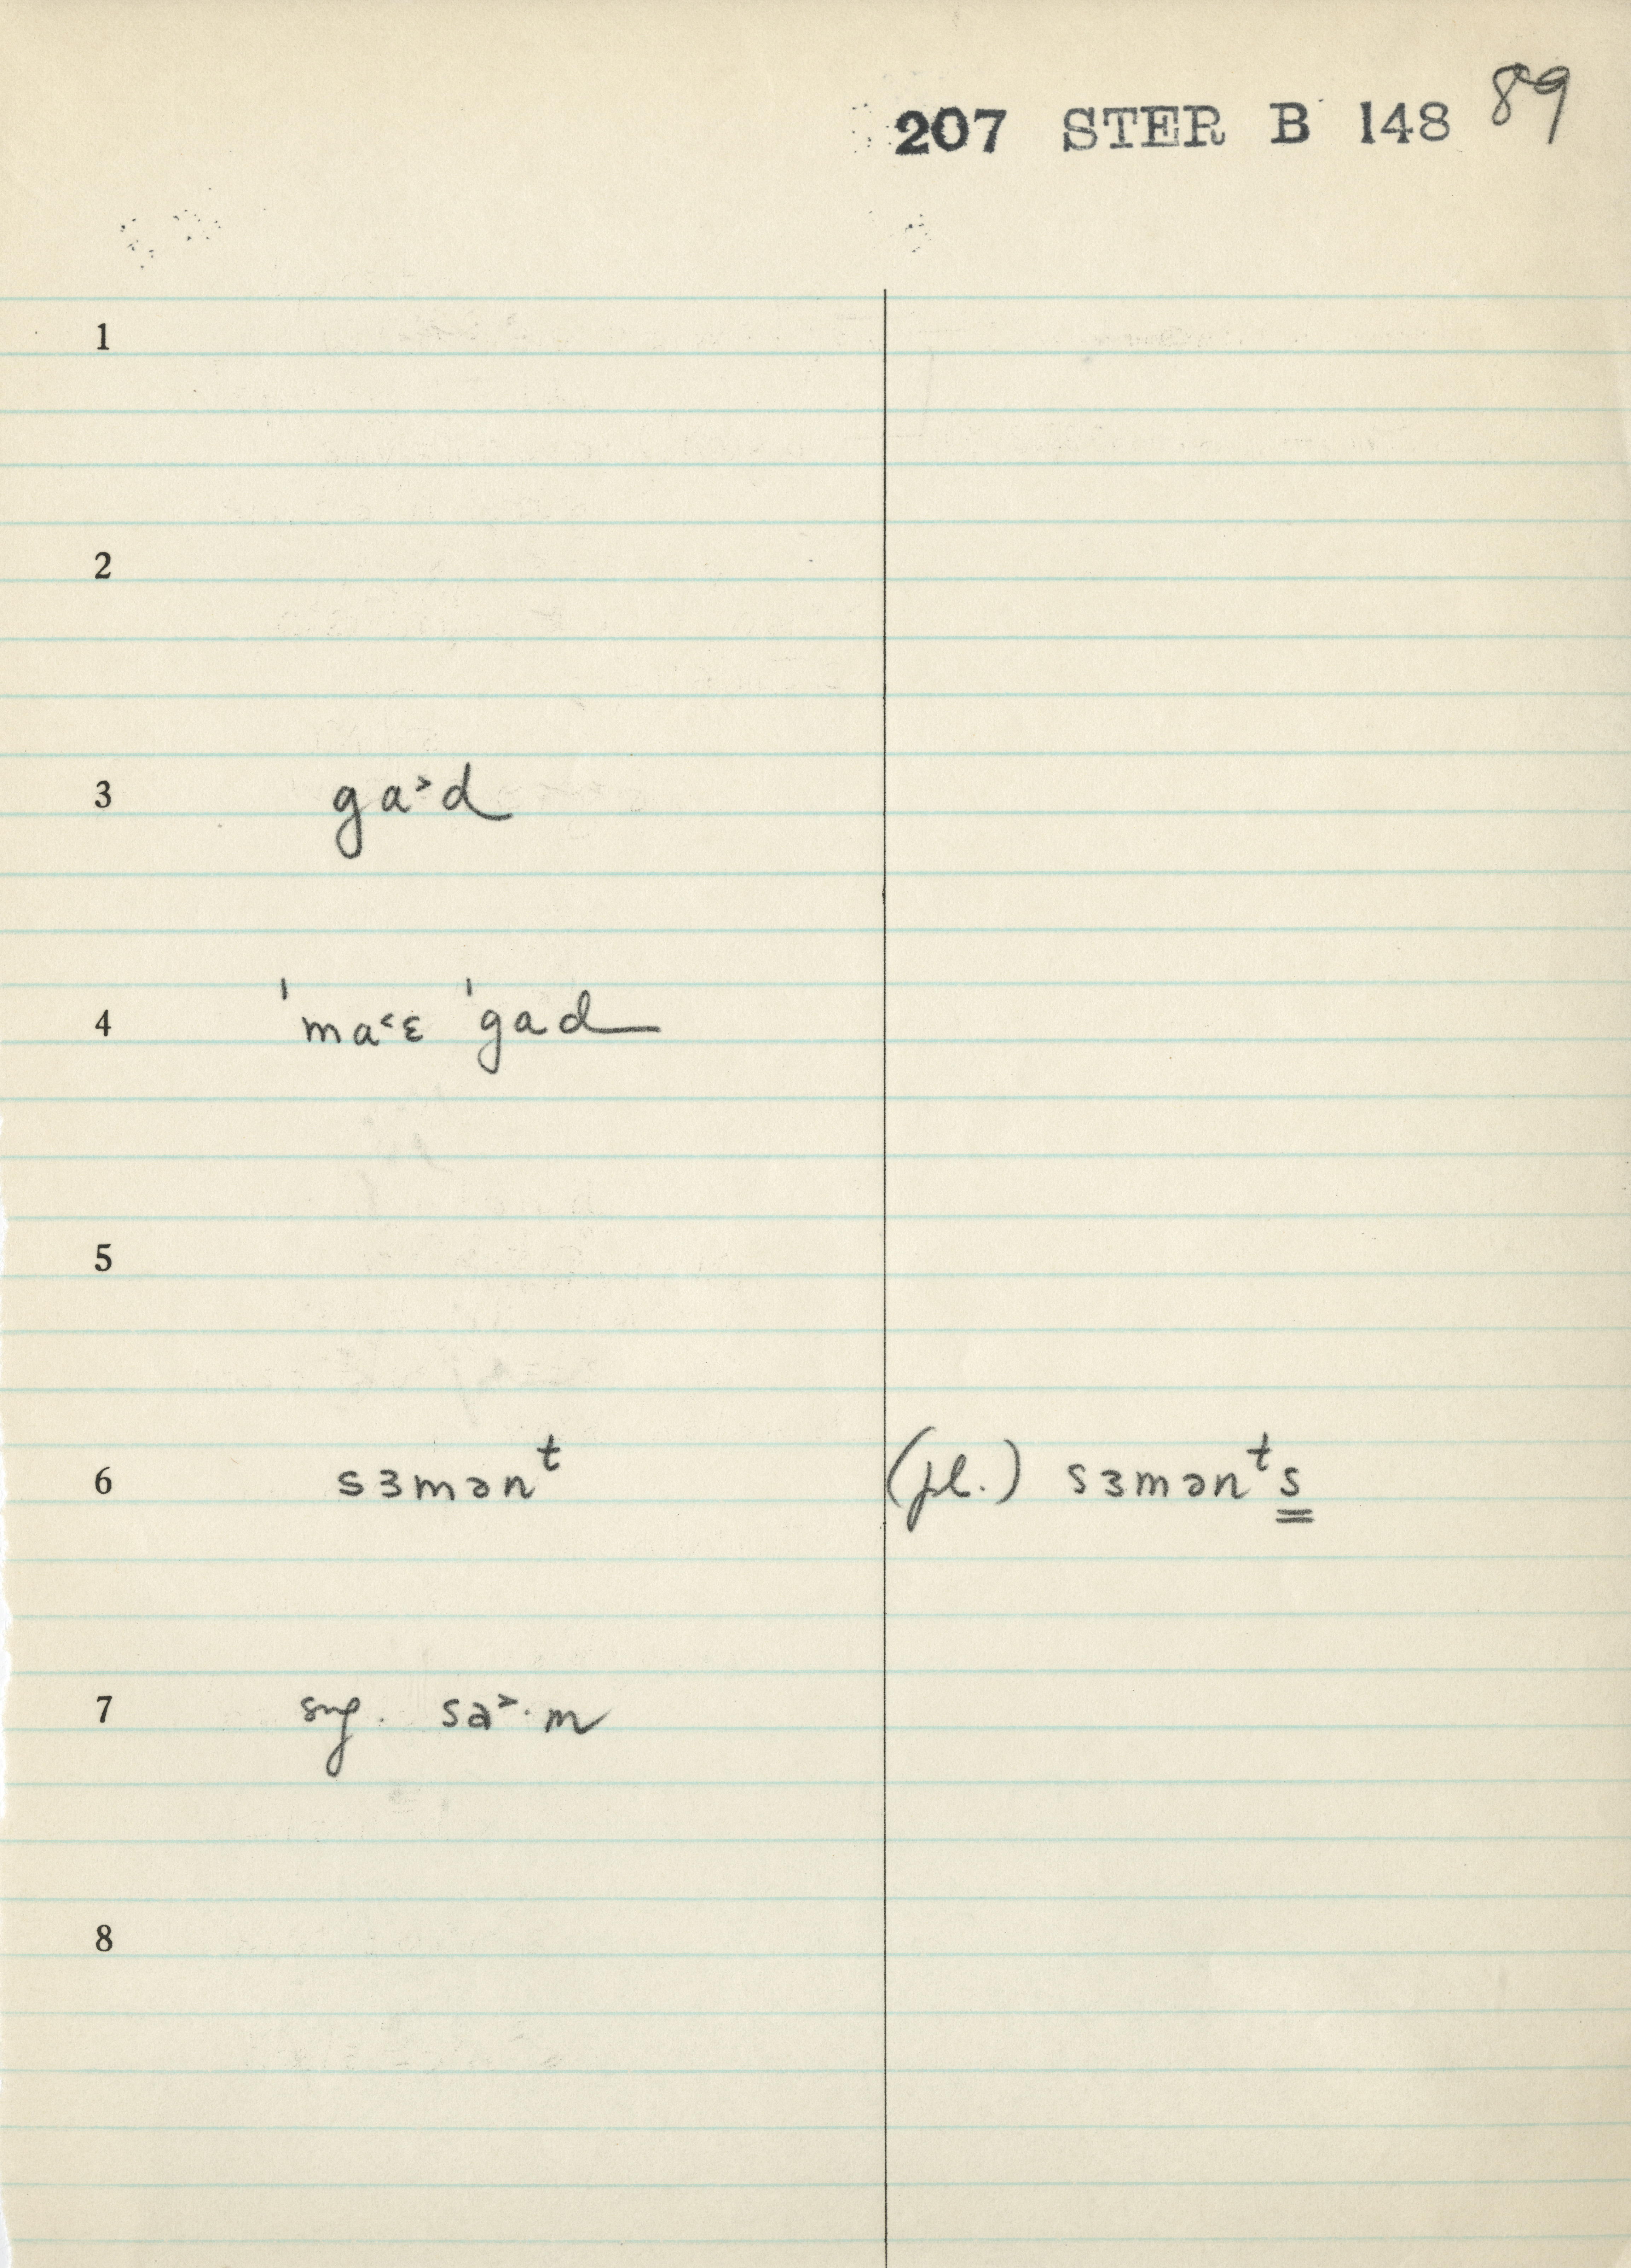 207 STER B 148 89
1
2
3 ga˃d
4 ˈma˂ɛ ˈgad
5
6 sɜmənᵗ (pl.) sɜmənᵗs
7 sng. sa˃·m
8